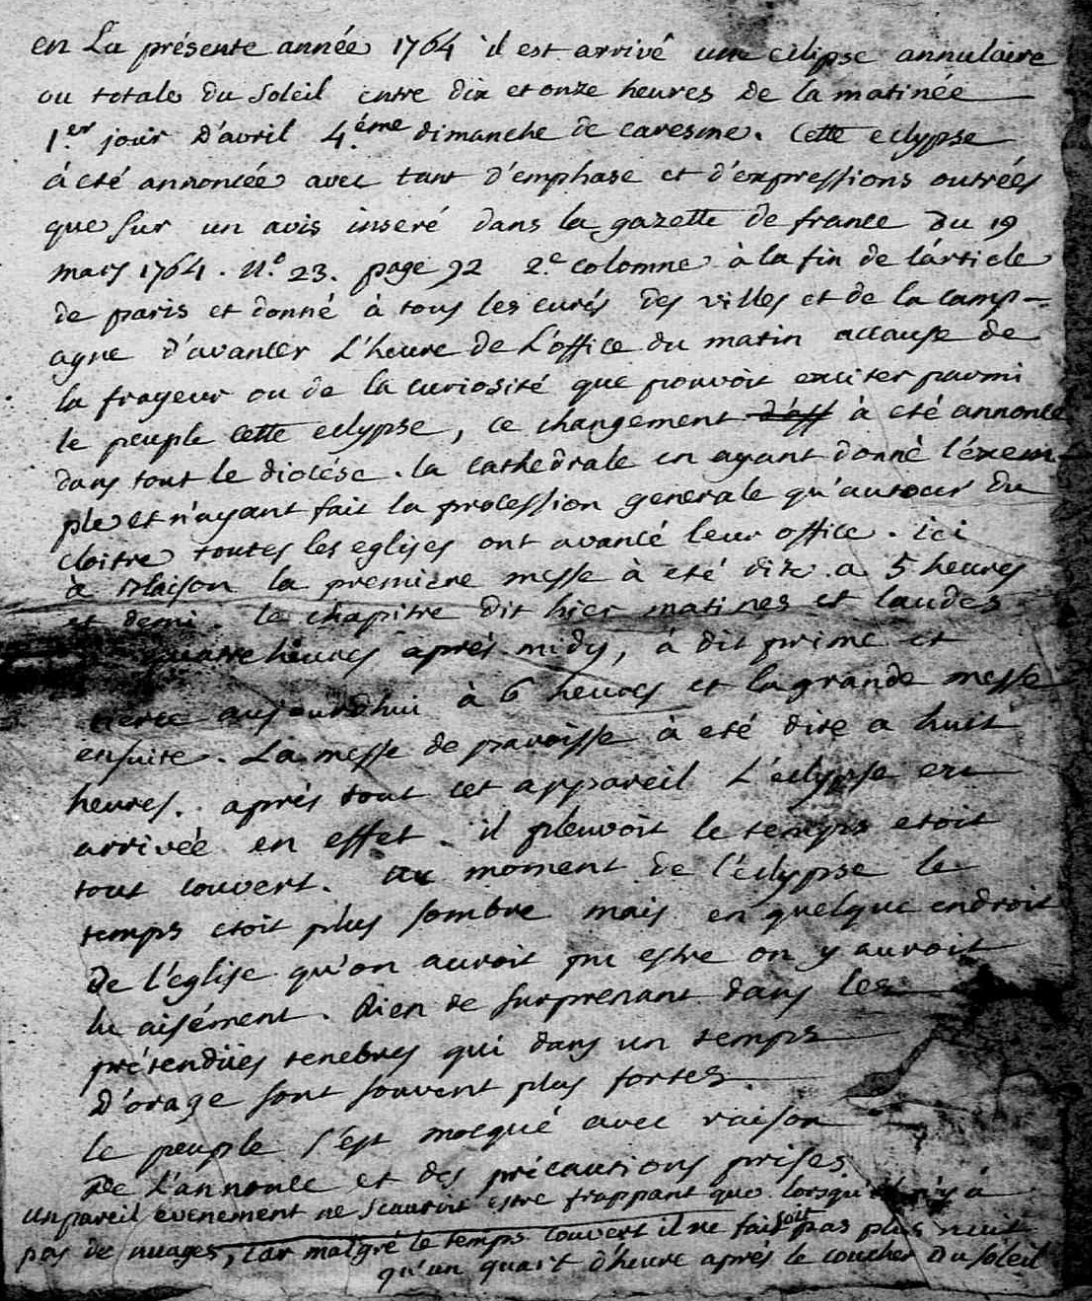 en La présente année 1764 il est arrivé une eclipse annulaire
ou totale du soleil entre dix et onze heures de la matinée
1.er jour d'avril 4.éme dimanche de caresme. Cette eclypse
à eté annoncée avec tant d'emphase et d'expressions outrées
que sur un avis inseré dans la gazette de france du 19
mars 1764. N.o 23. page 92 2.e colomne à la fin de l'article
de paris et donné à tous les curés des villes et de la camp-
agne d'avancer l'heure de l'office du matin accause de
la frayeur ou de la curiosité que pouvoit exciter parmi
le peuple cette eclypse, ce changement d'off à eté annoncé
dans tout le diocése. la cathedrale en ayant donné l'éxem-
ple et n'ayant fait la procession generale qu'autour du
cloitre toutes les eglises ont avancé leur office. ici
à Plaison la premiere messe à eté dite a 5 heures
et demi. le chapitre dit hier matines et laudes
quatre heures aprés midy, à dit prime et
tierce aujourdhui à 6 heures et la grande messe
ensuite. La messe de paroisse à eté dite a huit
heures. aprés tout cet appareil L'eclypse est
arrivée en effet. il pleuvoit le temps etoit
tout couvert. Au moment de l'éclypse le
temps etoit plus sombre mais en quelque endroit
de l'église qu'on auroit pu estre on y auroit
lu aisément. Rien de surprenant dans les
prétendües tenebres qui dans un temps
d'orage sont souvent plus fortes.
le peuple s'est mocqué avec raison
De L'annonce et des précautions prises
un pareil evenement ne scauroit estre frappant que lorsqu'il n'y à
pas de nuages, car malgré le temps couvert il ne faisoit pas plus nuit
qu'un quart d'heure aprés le coucher Du soleil